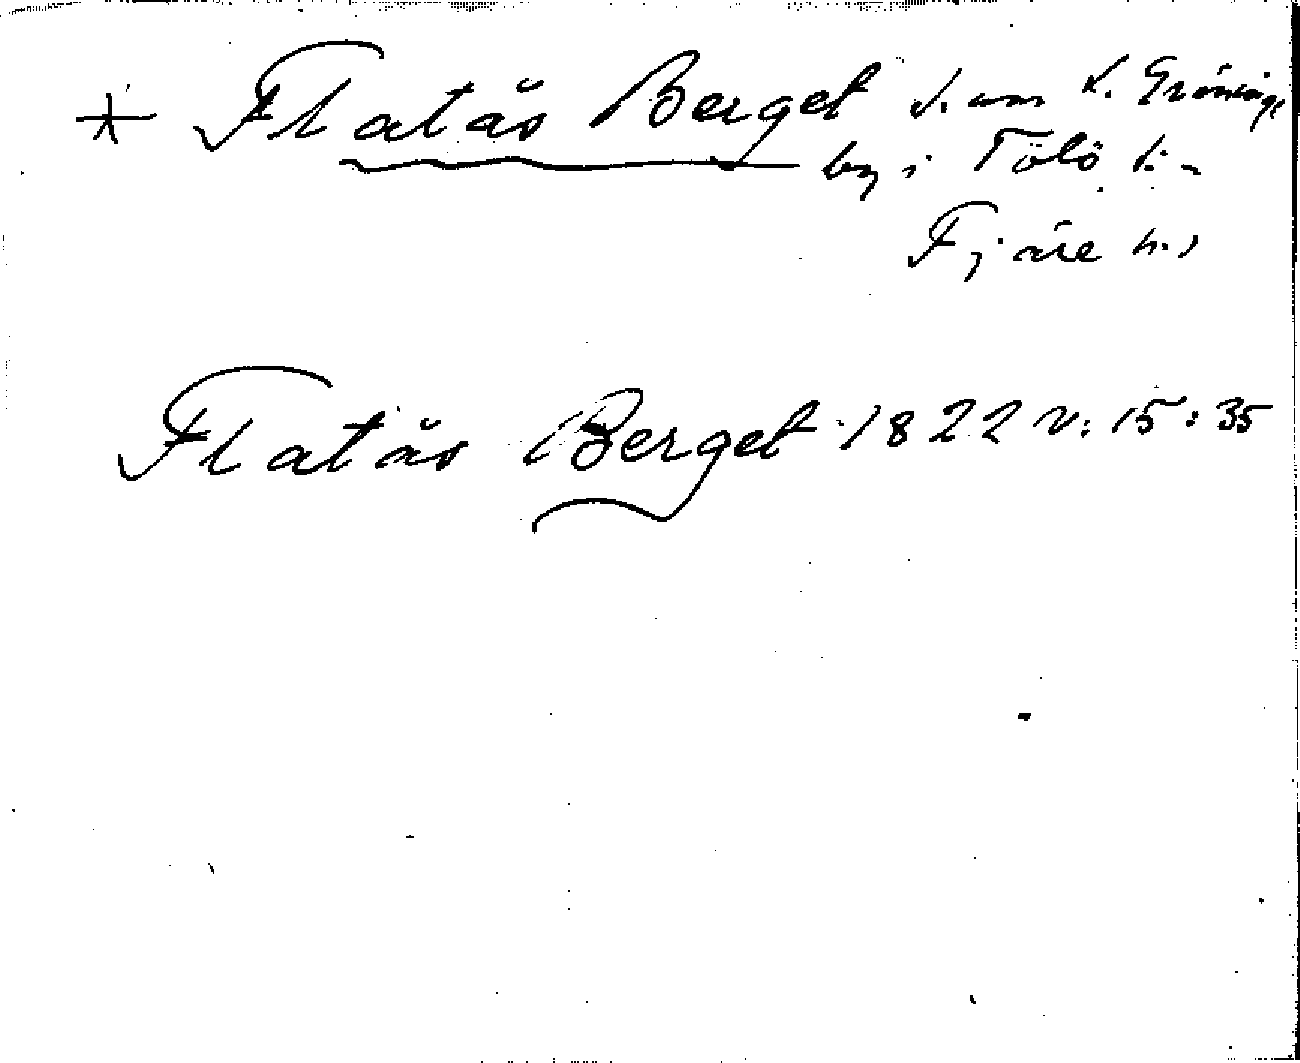 * Flatås Berget s. om L. Gröninge
by i Tölö s:n
Fjäre h.)
Flatås Berget 1822 v: 15:35